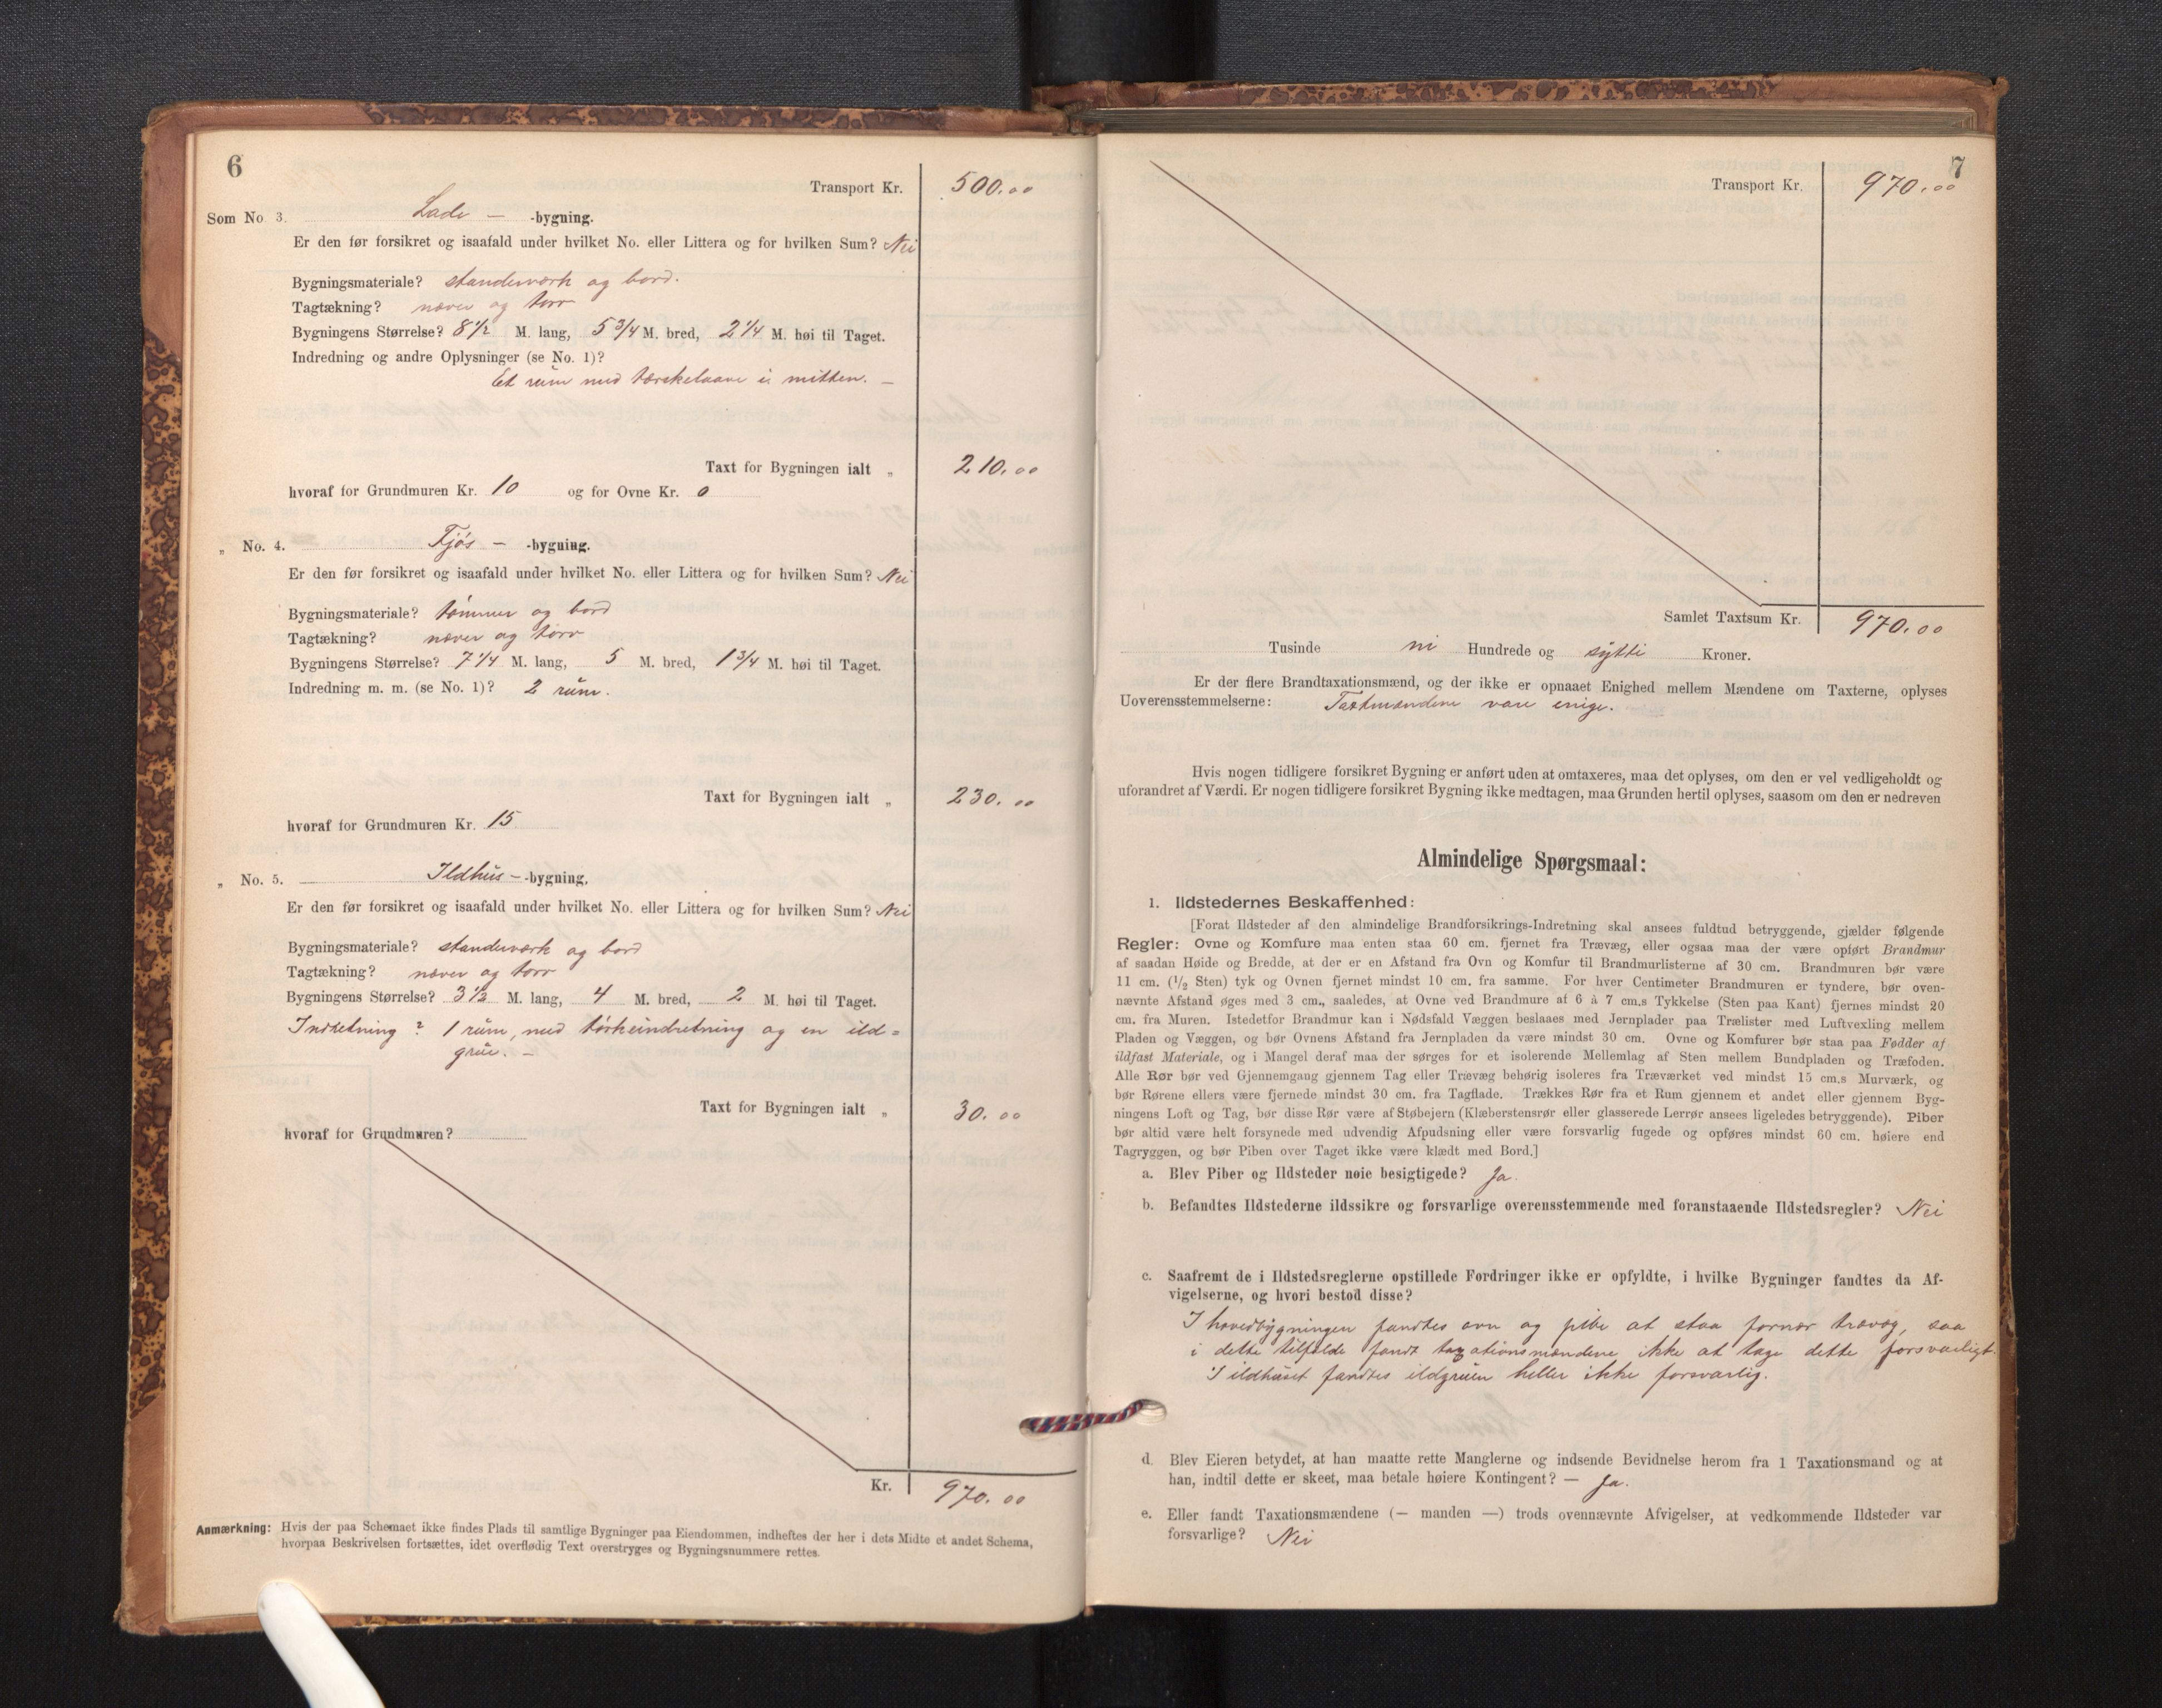 6
Transport Kr. 500.00
Som No 3. Lade — -bygning.
Er den før forsikret og isaafald under hvilket No. eller Littera og for hvilken Sum? Nei
Bygningsmateriale? standerværk og bord.
Tagtækning? næver og torv
Bygningens Størrelse? 8 1/2 M. lang, 5 3/4 M. bred, 2 1/4 M. høi til Taget.
Indredning og andre Oplysninger (se No. 1)?
Et rüm med tærskelaave i mitten. —
Taxt for Bygningen ialt „ 210.00
hvoraf for Grundmuren Kr. 10 og for Ovne Kr. 0
„ No. 4. Fjøs — -bygning.
Er den før forsikret og isaafald under hvilket No. eller Littera og for hvilken Sum? Nei
Bygningsmateriale? tømmer og bord
Tagtækning? næver og torv
Bygningens Størrelse? 7 1/4 M. lang, 5 M. bred, 1 3/4 M. høi til Taget.
Indredning m. m. (se No. 1)? 2 rüm.
Taxt for Bygningen ialt „ 230.00
hvoraf for Grundmuren Kr. 15
„ No. 5. Ildhüs — -bygning.
Er den før forsikret og isaafald under hvilket No. eller Littera og for hvilken Sum? Nei
Bygningsmateriale? standerværk og bord
Tagtækning? næver og torv
Bygningens Størrelse? 3 1/2 M. lang, 4 M. bred, 2 M. høi til Taget.
Indretning? 1 rüm, med tørkeindretning og en ild=
grüe. —
Taxt for Bygningen ialt „ 30.00
hvoraf for Grundmuren?
Kr. 970.00
Anmærkning: Hvis der paa Schemaet ikke findes Plads til samtlige Bygninger paa Eiendommen, indheftes der her i dets Midte et andet Schema,
hvorpaa Beskrivelsen fortsættes, idet overflødig Text overstryges og Bygningsnummere rettes.
7
Transport Kr. 970.00
Samlet Taxtsum Kr. 970.00
Tusinde ni Hundrede og sytti Kroner.
Er der flere Brandtaxationsmænd, og der ikke er opnaaet Enighed mellem Mændene om Taxterne, oplyses
Uoverensstemmelserne: Taxtmændene vare enige.
Hvis nogen tidligere forsikret Bygning er anført uden at omtaxeres, maa det oplyses, om den er vel vedligeholdt og
uforandret af Værdi. Er nogen tidligere forsikret Bygning ikke medtagen, maa Grunden hertil oplyses, saasom om den er nedreven
Almindelige Spørgsmaal:
1. Ildstedernes Beskaffenhed:
[Forat Ildsteder af den almindelige Brandforsikrings-Indretning skal ansees fuldtud betryggende, gjælder følgende
Regler: Ovne og Komfure maa enten staa 60 cm. fjernet fra Trævæg, eller ogsaa maa der være opført Brandmur
af saadan Høide og Bredde, at der er en Afstand fra Ovn og Komfur til Brandmurlisterne af 30 cm. Brandmuren bør være
11 cm. (1/2 Sten) tyk og Ovnen fjernet mindst 10 cm. fra samme. For hver Centimeter Brandmuren er tyndere, bør oven-
nævnte Afstand øges med 3 cm., saaledes, at Ovne ved Brandmure af 6 à 7 cm.s Tykkelse (Sten paa Kant) fjernes mindst 20
cm. fra Muren. Istedetfor Brandmur kan i Nødsfald Væggen beslaaes med Jernplader paa Trælister med Luftvexling mellem
Pladen og Væggen, og bør Ovnens Afstand fra Jernpladen da være mindst 30 cm. Ovne og Komfurer bør staa paa Fødder af
ildfast Materiale, og i Mangel deraf maa der sørges for et isolerende Mellemlag af Sten mellem Bundpladen og Træfoden.
Alle Rør bør ved Gjennemgang gjennem Tag eller Trævæg behørig isoleres fra Træværket ved mindst 15 cm.s Murværk, og
bør Rørene ellers være fjernede mindst 30 cm. fra Tagflade. Trækkes Rør fra et Rum gjennem et andet eller gjennem Byg-
ningens Loft og Tag, bør disse Rør være af Støbejern (Klæberstensrør eller glasserede Lerrør ansees ligeledes betryggende). Piber
bør altid være helt forsynede med udvendig Afpudsning eller være forsvarlig fugede og opføres mindst 60 cm. høiere end
Tagryggen, og bør Piben over Taget ikke være klædt med Bord.]
a. Blev Piber og Ildsteder nøie besigtigede? Ja.
b. Befandtes Ildstederne ildssikre og forsvarlige overensstemmende med foranstaaende Ildstedsregler? Nei
c. Saafremt de i Ildstedsreglerne opstillede Fordringer ikke er opfyldte, i hvilke Bygninger fandtes da Af-
vigelserne, og hvori bestod disse?
I hovedbygningen fandtes ovn og pibe at staa fornær trævæg, saa
i dette tilfælde fandt taxationsmændene ikke at tage dette forsvarligt.
I ildhüset fandtes ildgrüen heller ikke forsvarlig.
d. Blev Eieren betydet, at han maatte rette Manglerne og indsende Bevidnelse herom fra 1 Taxationsmand og at
han, indtil dette er skeet, maa betale høiere Kontingent? — Ja.
e. Eller fandt Taxationsmændene (— manden —) trods ovennævnte Afvigelser, at vedkommende Ildsteder var
forsvarlige? Nei